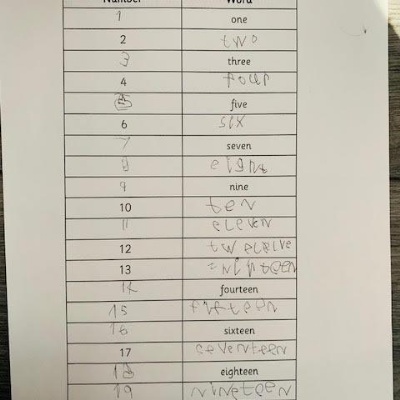 Number Word
1 one
2 two
3 three
4 four
5 five
6 six
7 seven
8
9 nine
10 ten
11 eleven
12
13
14 fourteen
15
16 sixteen
17 seventeen
18 eighteen
19 nineteen